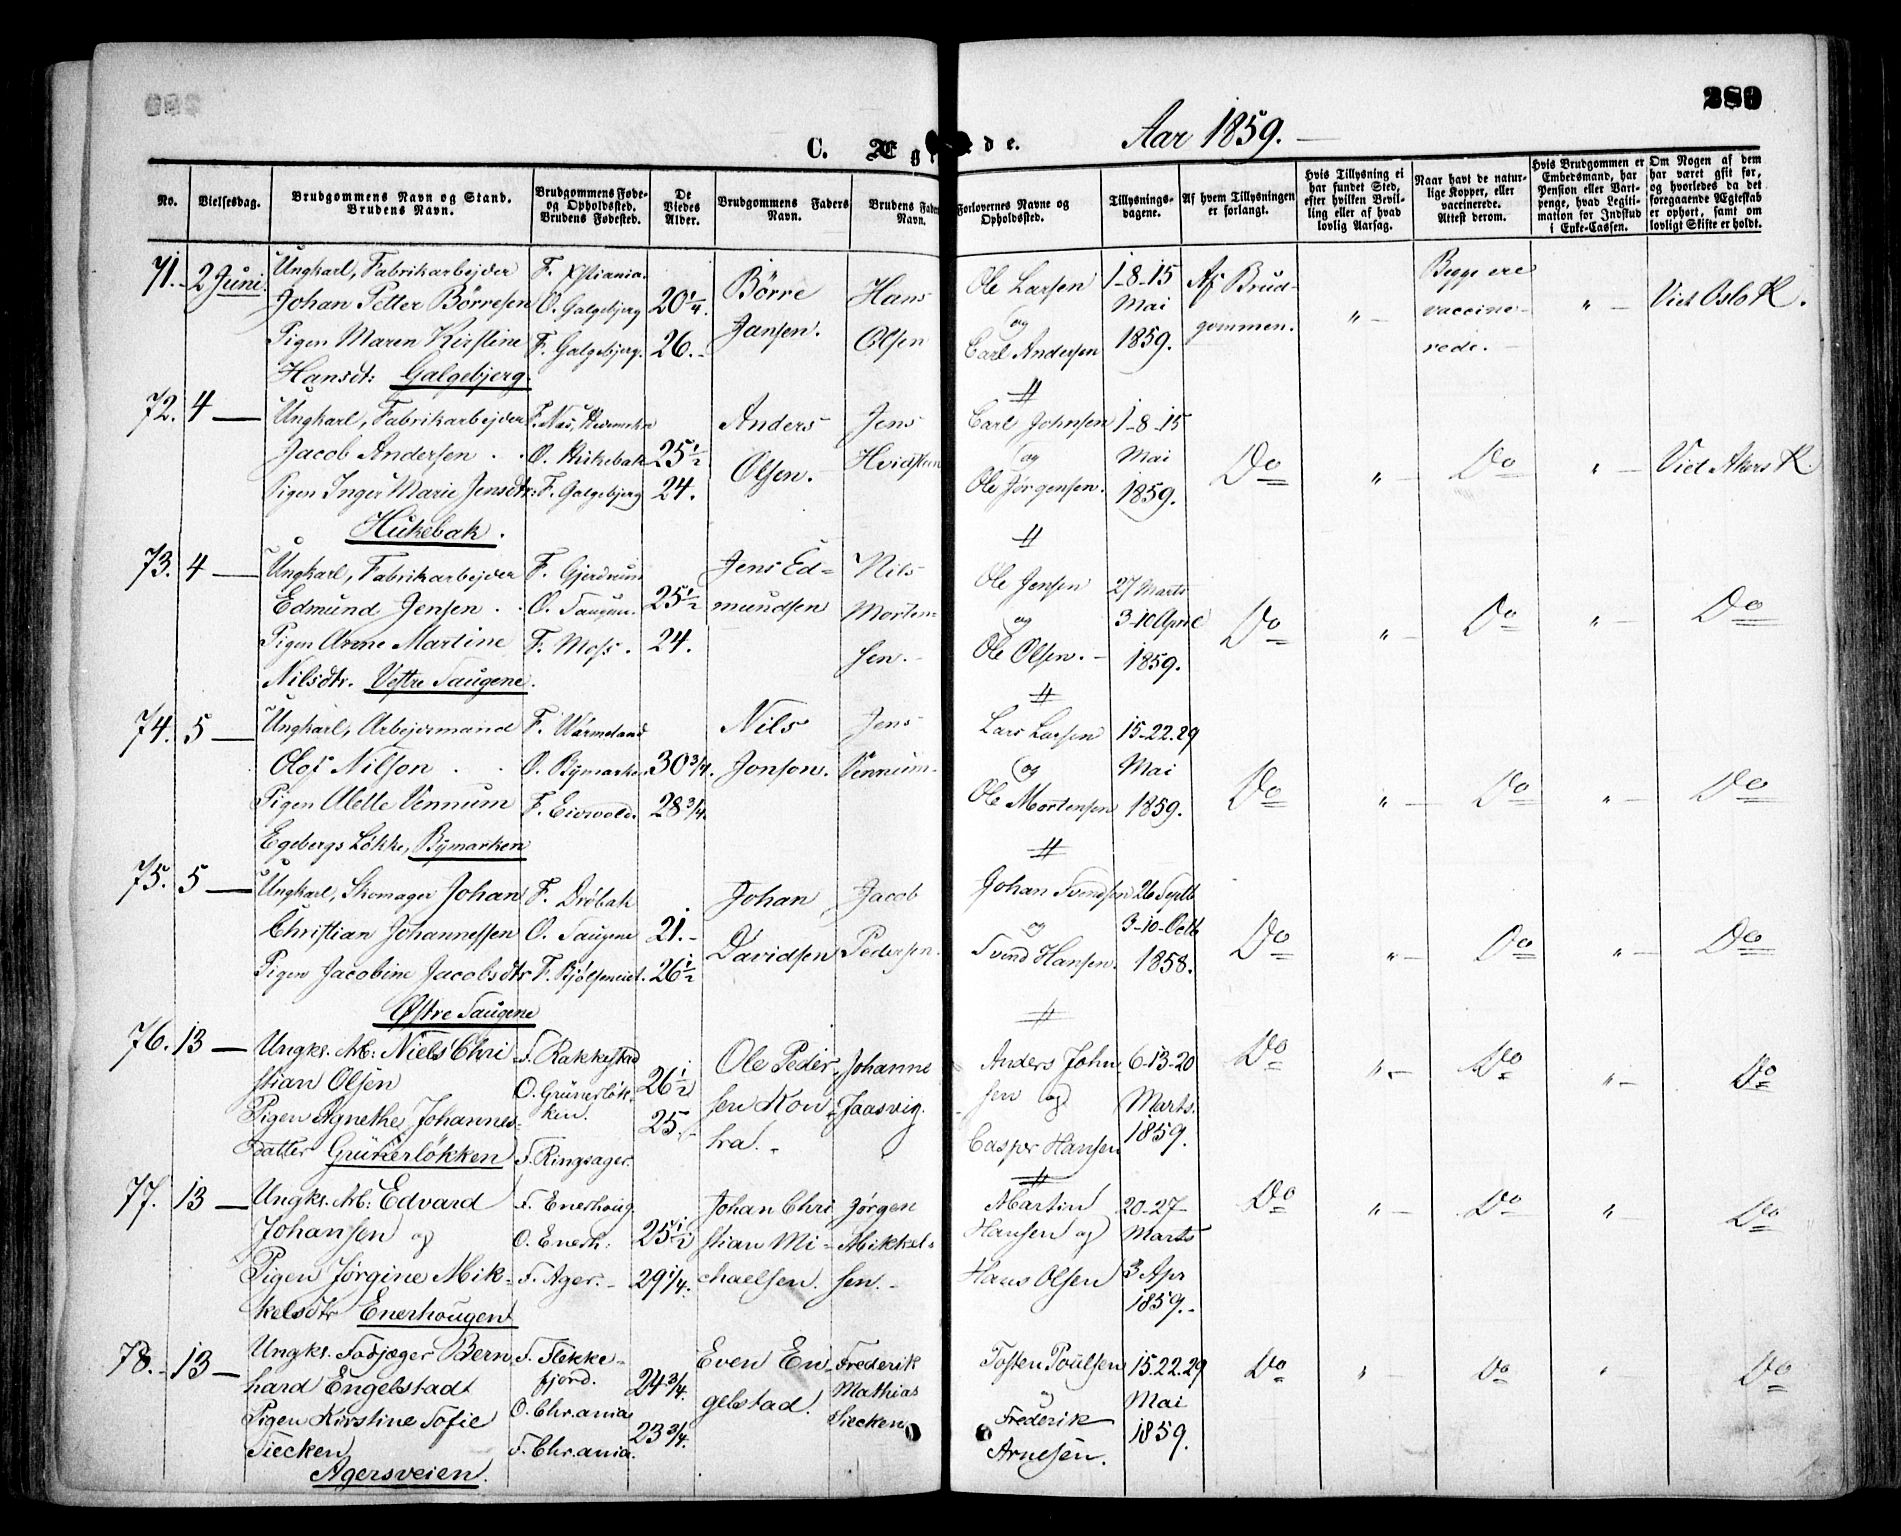 289
C. Æg ede. Aar 1859.
No.
Vielsesdag.
Brudgommens Navn og Stand.
Brudens Navn.
Brudgommens Føde-
og Opholdssted.
Brudens Fødested.
De
Viedes
Alder.
Brudgommens Faders
Navn.
Brudens Faders
Navn.
Forlovernes Navne og
Opholdssted.
Tillysnings-
dagene.
Af hvem Tillysningen
er forlangt.
Hvis Tillysning ei
har fundet Sted,
efter hvilken Bevil-
ling eller af hvad
lovlig Aarsag.
Naar havt de natur-
lige Kopper, eller
vaccinerede.
Attest derom.
Hvis Brudgommen er
Embedsmand, har
Pension eller Vart-
penge, hvad Legiti-
mation for Indskud
i Enke-Cassen.
Om Nogen af dem
har været gift før,
og hvorledes da det
foregaaende Ægteskab
er ophørt, samt om
lovligt Skifte er holdt.
71. 2 Juni.
Ungkarl, Fabrikarbejder
Johan Petter Börresen
Pigen Maren Kirstine
Hansdt: Galgebjerg.
F. Xstiania.
O. Galgebjerg
F. Galgebjerg.
20 1/4.
26.
Börre
Jansen.
Hans
Olsen
Ole Larsen
og
Carl Andersen
1-8-15
Mai
1859.
Af Brud-
gommen.
" -
Begge ere
vaccine-
rede.
" -
Viet Oslo K.
72. 4 —
Ungkarl, Fabrikarbejder
Jacob Andersen
Pigen Inger Marie Jensdtr:
Hukebak.
F. Nes, Hedemarken
O. Hukebak
F. Galgebjerg
25 1/2
24.
Anders
Olsen.
Jens
Hvidsteen
Carl Johnsen
og
Ole Jørgensen.
1-8-15
Mai
1859.
Do
" -
Do
" -
Viet Akers K.
73. 4 —
Ungkarl, Fabrikarbejder
Edmund Jensen
Pigen Anne Martine
Nilsdtr. Vestre Saugene.
F. Gjerdrum
O. Saugene.
F. Moss.
25 1/2
24.
Jens Ed=
mundsen
Nils
Morten-
sen.
Ole Jensen
og
Ole Olsen.
27 Marts
3-10 April
1859.
Do
" -
Do
" -
Do
74. 5 —
Ungkarl, Arbejdermand
Olof Nilson
Pigen Alette Vennum
Egebergs Løkke, Bymarken
F. Wärmeland
O. Bymarken
F. Eidsvold.
30 3/4.
28 3/4.
Nils
Jonson.
Jens
Vennum.
Lars Larsen
og
Ole Mortensen
15-22.29
Mai
1859.
Do
" -
Do
" -
Do
75. 5 —
Ungkarl, Skomager Johan
Christian Johannessen
Pigen Jacobine Jacobsdtr
Østre Saugene
F. Drøbak
O. Saugene
F. Bjølseneiet.
21.
26 1/2
Johan
Davidsen
Jacob
Pedersen.
Johan Svendsen
og
Svend Hansen.
26 Septb
3-10-Octb
1858.
Do
" -
Do
" -
Do
76. 13 —
Ungks. Arb: Niels Chri
stian Olsen
Pigen Agnethe Johannes-
datter Grünerløkken
F. Rakkestad
O. Grünerløk-
ken.
F. Ringsager.
26 1/2
25.
Ole Peder
sen Kon-
hra.
Johannes
Faasvig.
Anders John
sen og
Casper Hansen
6-13-20
Marts.
1859.
Do
" -
Do
" -
Do
77. 13 —
Ungks. Arb: Edvard
Johansen og
Pigen Jørgine Mik-
kelsdtr Enerhougen
F. Enerhoug.
O. Enerh:
F. Ager.
25 1/2
29 1/4.
Johan Chri
stian Mi-
chaelsen.
Jørgen
Mikkel-
sen.
Martin
Hansen og
Hans Olsen
20-27
Marts
3 Apr
1859.
Do
" -
Do
"
Do
78. 13 —
Ungks. Fodjæger Bern
hard Engelstadt
Pigen Kirstine Sofie
Siecken
Agersveien.
F. Flekke-
fjord.
O. Chr.ania
F. Chr.ania.
24 3/4.
23 3/4.
Even En
gelstad.
Frederik
Mathias
Siecken
Tosten Poulsen
og
Frederik
Arnesen.
15.22.29
Mai
1859.
Do
" -
Do
"
Do